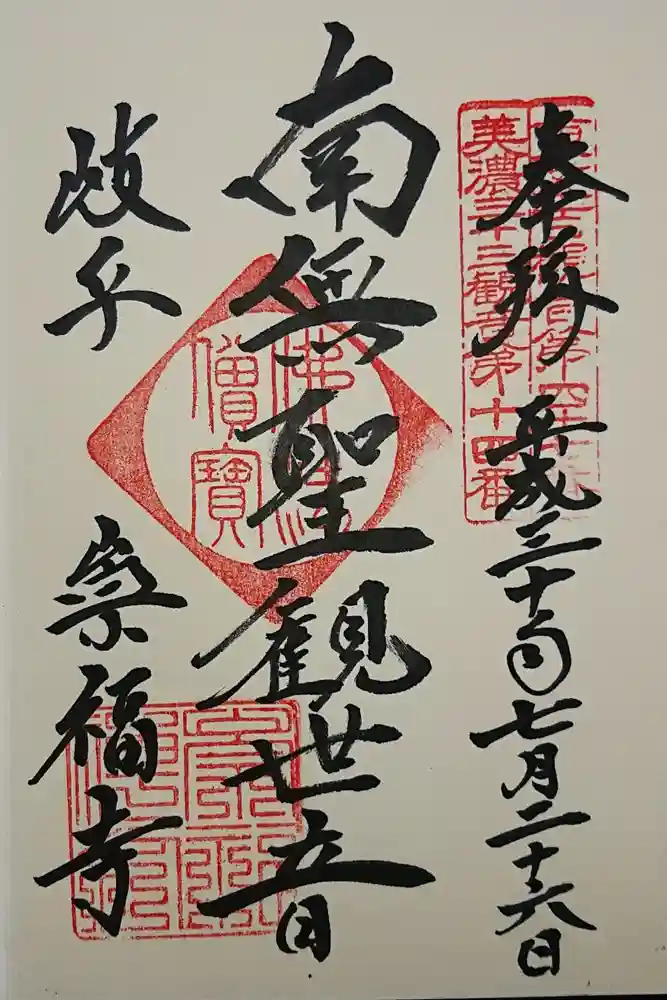 奉拝 平成三十年七月二十六日
美濃三十三観音第十四番
南無聖観世音
佛法
僧寶
岐阜 崇福寺